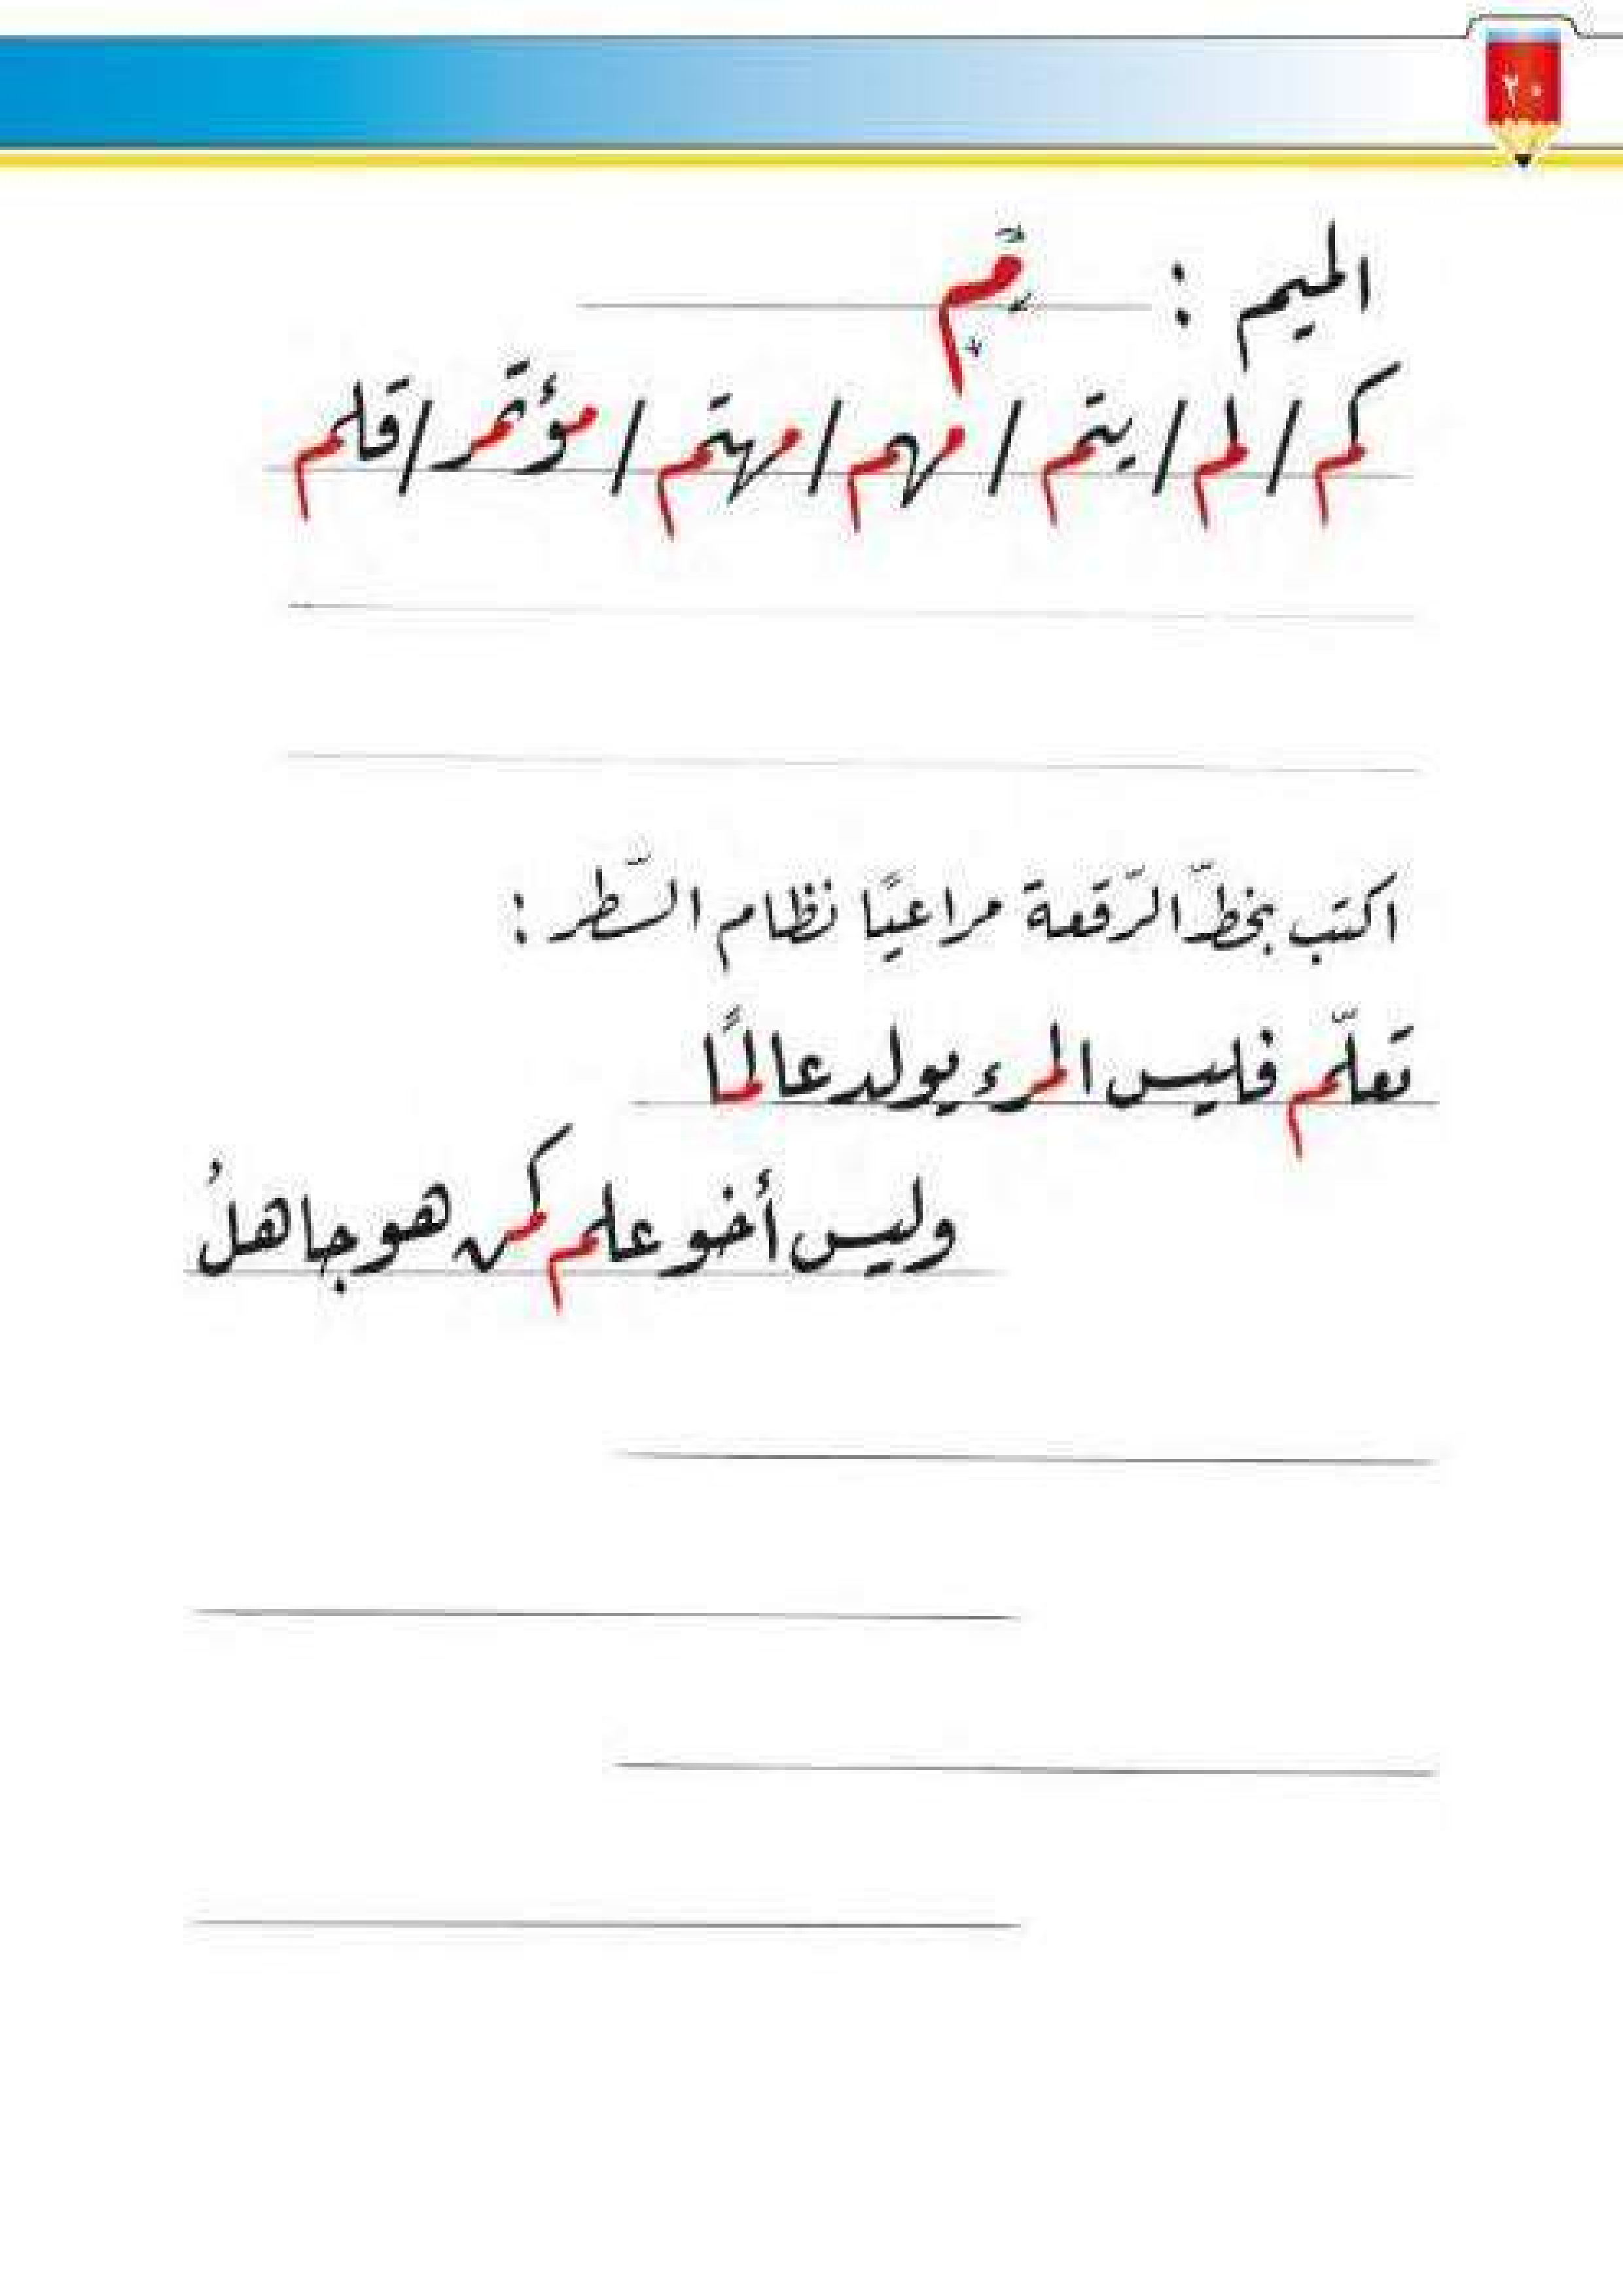 ٢٠
الميم : م
كم / لم / يتم / مهم / مهتم / مؤتمر / قلم
اكتب بخطّ الرّقعة مراعيًا نظام السّطر :
تعلّم فليس المرء يولد عالمًا
وليس أخو علم كمن هو جاهلُ